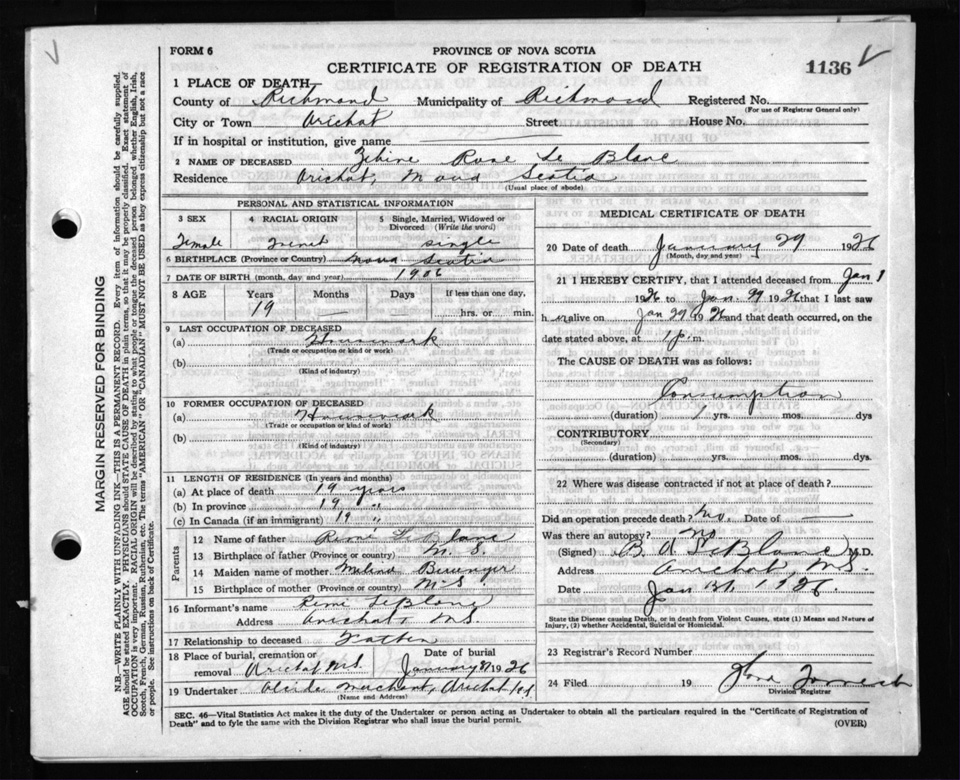 FORM 6
PROVINCE OF NOVA SCOTIA
CERTIFICATE OF REGISTRATION OF DEATH
1136
1 PLACE OF DEATH—
County of Richmond Municipality of Richmond Registered No.
(For use of Registrar General only)
City or Town Arichat Street House No.
If in hospital or institution, give name
2 NAME OF DECEASED Rose Le Blanc
Residence Arichat, Nova Scotia
(Usual place of abode)
PERSONAL AND STATISTICAL INFORMATION
3 SEX 4 RACIAL ORIGIN 5 Single, Married, Widowed or Divorced (Write the word)
Female French single
6 BIRTHPLACE (Province or Country) Nova Scotia
7 DATE OF BIRTH (month, day and year) 1906
8 AGE Years Months Days If less than one day,
19 — — hrs. or min.
9 LAST OCCUPATION OF DECEASED
(a) Housework
(Trade or occupation or kind or work)
(b)
(Kind of industry)
10 FORMER OCCUPATION OF DECEASED
(a) Housework
(Trade or occupation or kind of work)
(b)
(Kind of industry)
11 LENGTH OF RESIDENCE (In years and months)
(a) At place of death 19 years
(b) In province 19 "
(c) In Canada (if an immigrant) 19 "
Parents
12 Name of father Remi LeBlanc
13 Birthplace of father (Province or country) N. S.
14 Maiden name of mother
15 Birthplace of mother (Province or country) N S
16 Informant's name Remi LeBlanc
Address Arichat, N.S.
17 Relationship to deceased Father
18 Place of burial, cremation or removal Arichat N.S. Date of burial January 31 1926
19 Undertaker Merchant, Arichat
(Name and Address)
MEDICAL CERTIFICATE OF DEATH
20 Date of death January 29 1926
(Month, day and year)
21 I HEREBY CERTIFY, that I attended deceased from Jan 1
1926 to Jan. 29 1926 that I last saw
h er alive on Jan 29 1926 and that death occurred, on the
date stated above, at 1 p.m.
The CAUSE OF DEATH was as follows:
Consumption
(duration) 1 yrs. mos. dys
CONTRIBUTORY
(Secondary)
(duration) yrs. mos. dys.
22 Where was disease contracted if not at place of death?
Did an operation precede death? No. Date of —
Was there an autopsy? No
(Signed) B. A. LeBlanc M.D.
Address Arichat, N.S.
Date Jan 31, 1926.
State the Disease causing Death, or in death from Violent Causes, state (1) Means and Nature of Injury, (2) whether Accidental, Suicidal or Homicidal.
23 Registrar's Record Number
24 Filed 19
Division Registrar
SEC. 46—Vital Statistics Act makes it the duty of the Undertaker or person acting as Undertaker to obtain all the particulars required in the "Certificate of Registration of
Death" and to fyle the same with the Division Registrar who shall issue the burial permit.
(OVER)
MARGIN RESERVED FOR BINDING
N.B.—WRITE PLAINLY WITH UNFADING INK—THIS IS A PERMANENT RECORD. Every item of information should be carefully supplied.
AGE should be stated EXACTLY. PHYSICIANS should STATE CAUSE OF DEATH in plain terms, so that it may be properly classified. Exact statement of
OCCUPATION is very important. RACIAL ORIGIN will be described by stating to what people or tongue the deceased person belonged whether English, Irish,
Scotch, French, German, Russian, Ruthenian, etc. The terms "AMERICAN" OR "CANADIAN" MUST NOT BE USED as they express citizenship but not a race
or people. See instructions on back of Certificate.